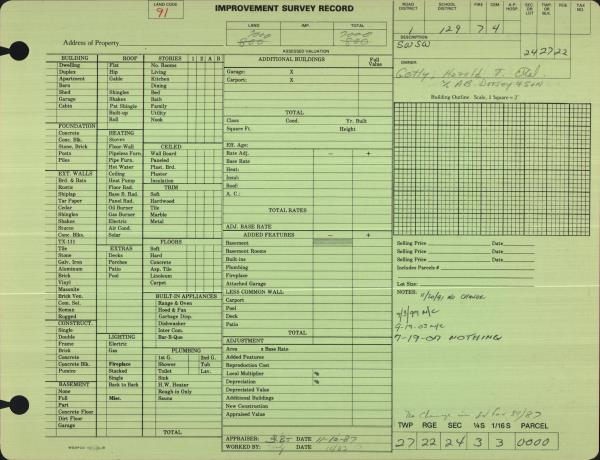 LAND CODE
91
IMPROVEMENT SURVEY RECORD
LAND IMP. TOTAL
7000 7000
800 800
ASSESSED VALUATION
Address of Property
ROAD DISTRICT SCHOOL DISTRICT FIRE CEM A.P. HOSP. SEC OR LOT TWP. OR BLK. RGE
129 7 4
DESCRIPTION
SWSW 24 27 22
OWNER
Harold T.
% A.B. Dorsey & Son
Building Outline Scale, 1 Square =
BUILDING ROOF STORIES 1 2 A B
Dwelling Flat No. Rooms
Duplex Hip Living
Apartment Gable Kitchen
Barn Dining
Shed Shingles Bed
Garage Shakes Bath
Cabin Pat Shingle Family
Built-up Utility
Roll Nook
FOUNDATION
Concrete HEATING
Conc. Blk. Stoves CEILED
Stone, Brick Floor-Wall Wall Board
Posts Pipeless Furn. Paneled
Piles Pipe Furn. Plast. Brd.
Hot Water Plaster
EXT. WALLS Ceiling Insulation
Brd. & Bats Heat Pump
Rustic Floor Rad. TRIM
Shiplap Base B. Rad. Soft
Tar Paper Panel Rad. Hardwood
Cedar Oil Burner Tile
Shingles Gas Burner Marble
Shakes Electric Metal
Stucco Air Cond.
Conc. Blks. Solar
TX-111 FLOORS
Tile EXTRAS Soft
Stone Decks Hard
Galv. Iron Porches Concrete
Aluminum Patio Asp. Tile
Brick Pool Linoleum
Vinyl Carpet
Masonite
Brick Ven. BUILT-IN APPLIANCES
Com. Sel. Range & Oven
Roman Hood & Fan
Rugged Garbage Disp.
CONSTRUCT. Dishwasher
Single Inter Com.
Double LIGHTING Bar-B-Que
Frame Electric
Brick Gas PLUMBING
Concrete 1st G. 2nd G.
Concrete Blk. Fireplace Shower Tub
Pumice Stacked Toilet Lav.
Single Sink
BASEMENT Back to Back H.W. Heater
None Rough-in Only
Full Misc. Sauna
Part
Concrete Floor
Dirt Floor
Garage TOTAL
ADDITIONAL BUILDINGS Full Value
Garage: X
Carport: X
TOTAL
Class Cond. Yr. Built
Square Ft. Height
Eff. Age:
Rate Adj. − +
Base Rate
Heat:
Insul:
Roof:
A. C.:
TOTAL RATES
ADJ. BASE RATE
ADDED FEATURES − +
Basement
Basement Rooms
Built-ins
Plumbing
Fireplace
Attached Garage
LESS COMMON WALL
Carport
Pool
Deck
Patio
TOTAL
ADJUSTMENT
Area x Base Rate
Added Features
Reproduction Cost
Local Multiplier %
Depreciation %
Depreciated Value
Additional Buildings
New Construction
Appraised Value
APPRAISER: DATE 11-10-87
WORKED BY: DATE
Selling Price Date
Selling Price Date
Selling Price Date
Includes Parcels #
Lot Size:
NOTES: NO CHANGE
N/C
9-17-03 N/C
7-19-07 NOTHING
No Change in for 84/87
TWP RGE SEC ¼S 1/16S PARCEL
27 22 24 3 3 0000